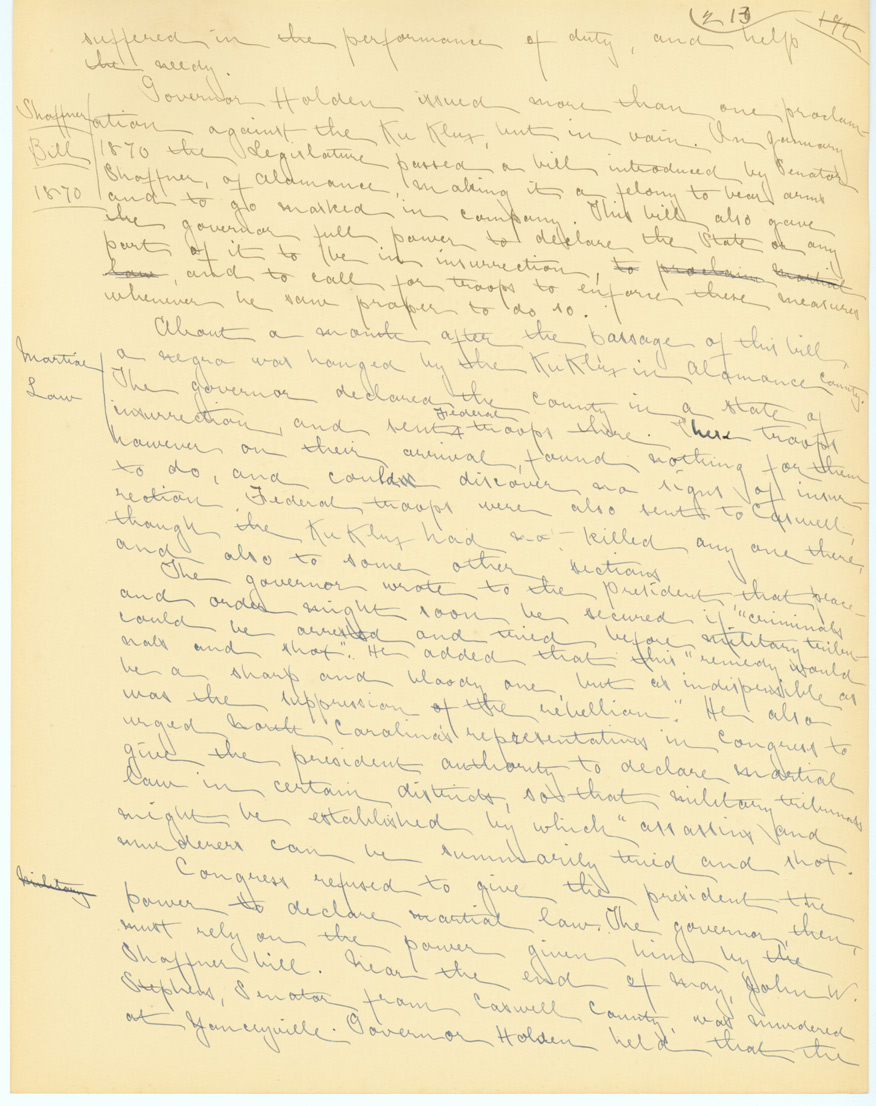 213 192
suffered in the performance of duty, and help
the needy.
Governor Holden issued more than one proclam-
Shaffner ation against the Ku Klux, but in vain. In January
Bill 1870 the Legislature passed a bill introduced by Senator
1870 Shaffner, of Alamance, making it a felony to bear arms
and to go masked in company. This bill also gave
the governor full power to declare the State or any
part of it to be in insurrection, to proclaim martial
law, and to call for troops to enforce these measures
whenever he saw proper to do so.
About a month after the passage of this bill,
Martial a negro was hanged by the Ku Klux in Alamance County.
Law The governor declared the county in a state of
insurrection, and sent Federal troops there. These troops
however on their arrival, found nothing for them
to do, and could discover no signs of insur-
rection. Federal troops were also sent to Caswell,
though the Ku Klux had not killed any one there,
and also to some other sections.
The governor wrote to the President that peace
and order might soon be secured if "criminals
could be arrested and tried before military tribu-
nals and shot". He added that this "remedy would
be a sharp and bloody one, but as indispensible as
was the suppression of the rebellion." He also
urged North Carolina's representatives in Congress to
give the president authority to declare martial
law in certain districts, so that military tribunals
might be established by which "assassins and
murderers can be summarily tried and shot.
Congress refused to give the president the
military power to declare martial law. The governor, then,
must rely on the power given him by the
Shaffner bill. Near the end of May, John W.
Stephens, Senator from Caswell County, was murdered
at Yanceyville. Governor Holden held that the